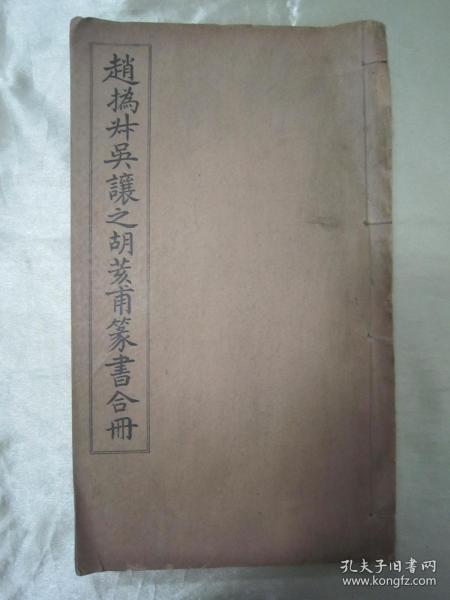 趙撝叔吳讓之胡荄甫篆書合冊
孔夫子旧书网
www.kongfz.com